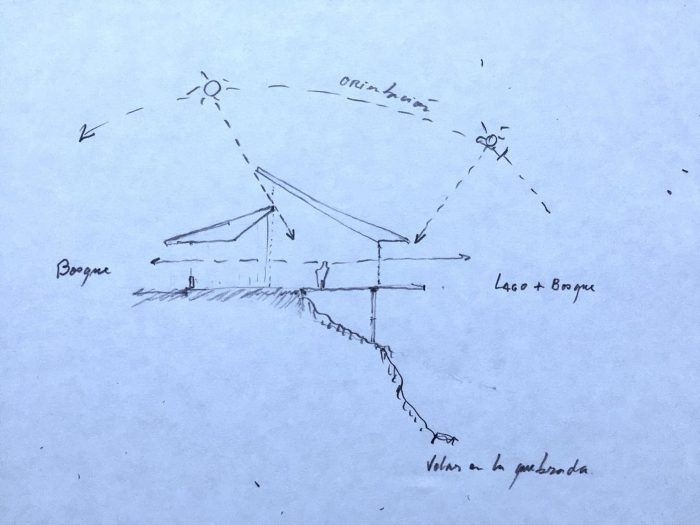 orientación
Bosque
LAGO + Bosque
Volar en la quebrada